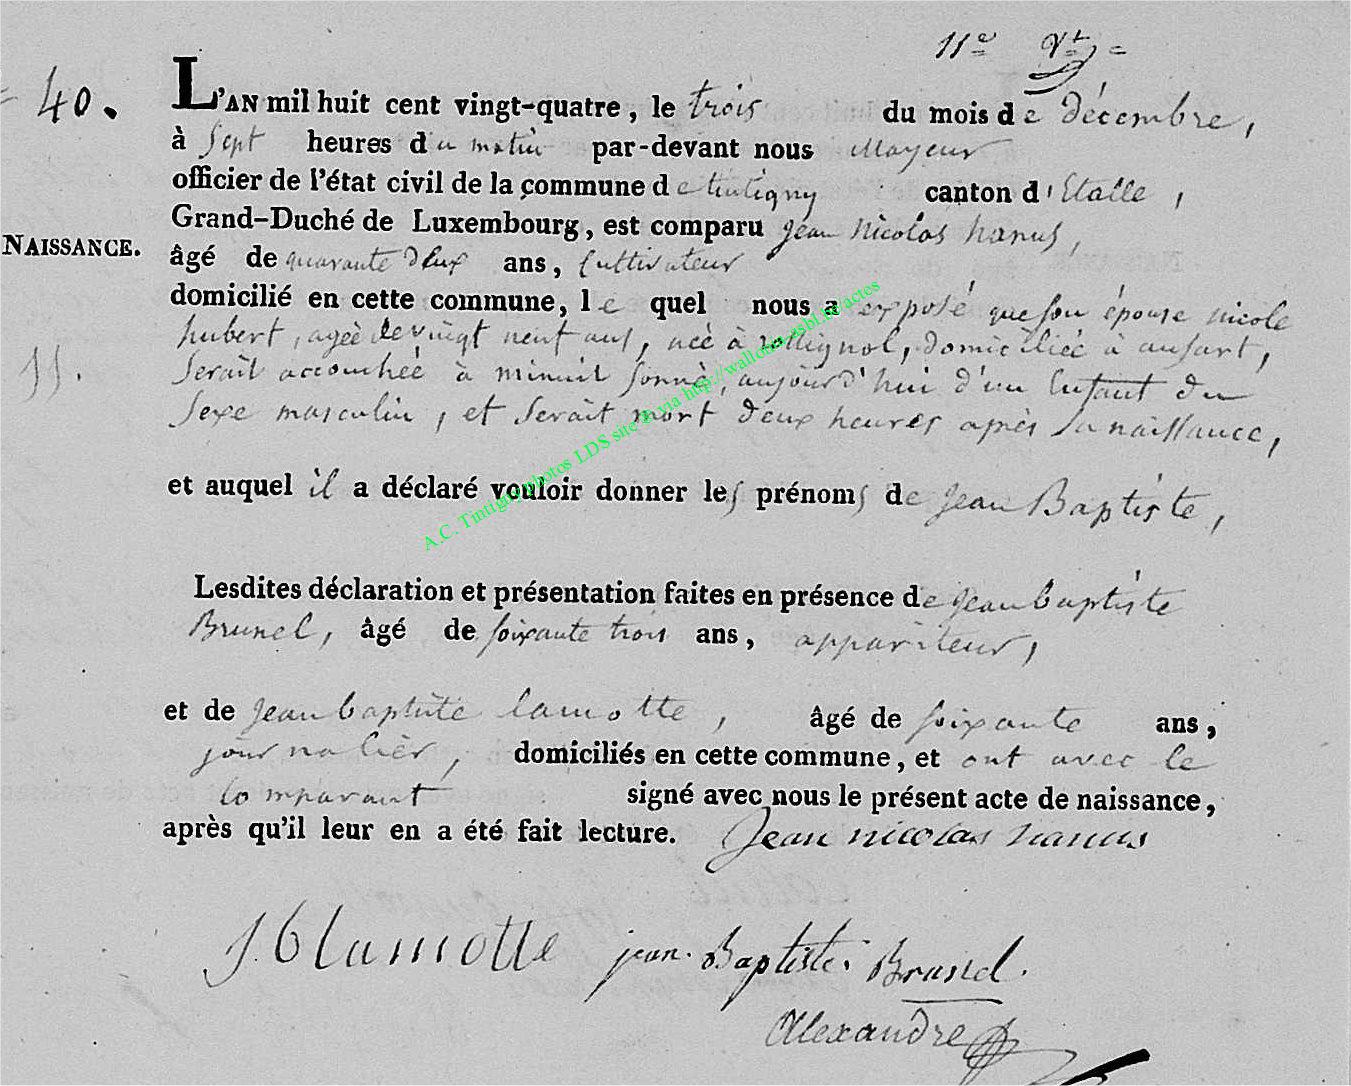 11e
40.
L'AN mil huit cent vingt-quatre, le trois du mois de décembre,
à sept heures du matin par-devant nous Mayeur
officier de l'état civil de la commune de tintigny canton d'Etalle,
Grand-Duché de Luxembourg, est comparu jean Nicolas hanus,
NAISSANCE.
âgé de quarante deux ans, Cultivateur
domicilié en cette commune, lequel nous a exposé que son épouse nicole
hubert, ageè de vingt neuf ans, neè à rossignol, domiciliéé à ansart,
11.
Serait accouchéé à minuit sonnè, aujourd'hui d'un Enfant du
sexe masculin, et Serait mort deux heures après sa naissance,
et auquel il a déclaré vouloir donner les prénoms de jean Baptiste,
Lesdites déclaration et présentation faites en présence de jean baptiste
Brunel, âgé de soixante trois ans, appariteur,
et de jean baptiste lamotte, âgé de soixante ans,
journalièr, domiciliés en cette commune, et ont avec le
Comparant signé avec nous le présent acte de naissance,
après qu'il leur en a été fait lecture. Jean nicolas hanus
J.B lamotte jean. Baptiste. Brunel.
Alexandre
A.C. Tintigny photos LDS site P. via http://wallonia-asbl.be/actes